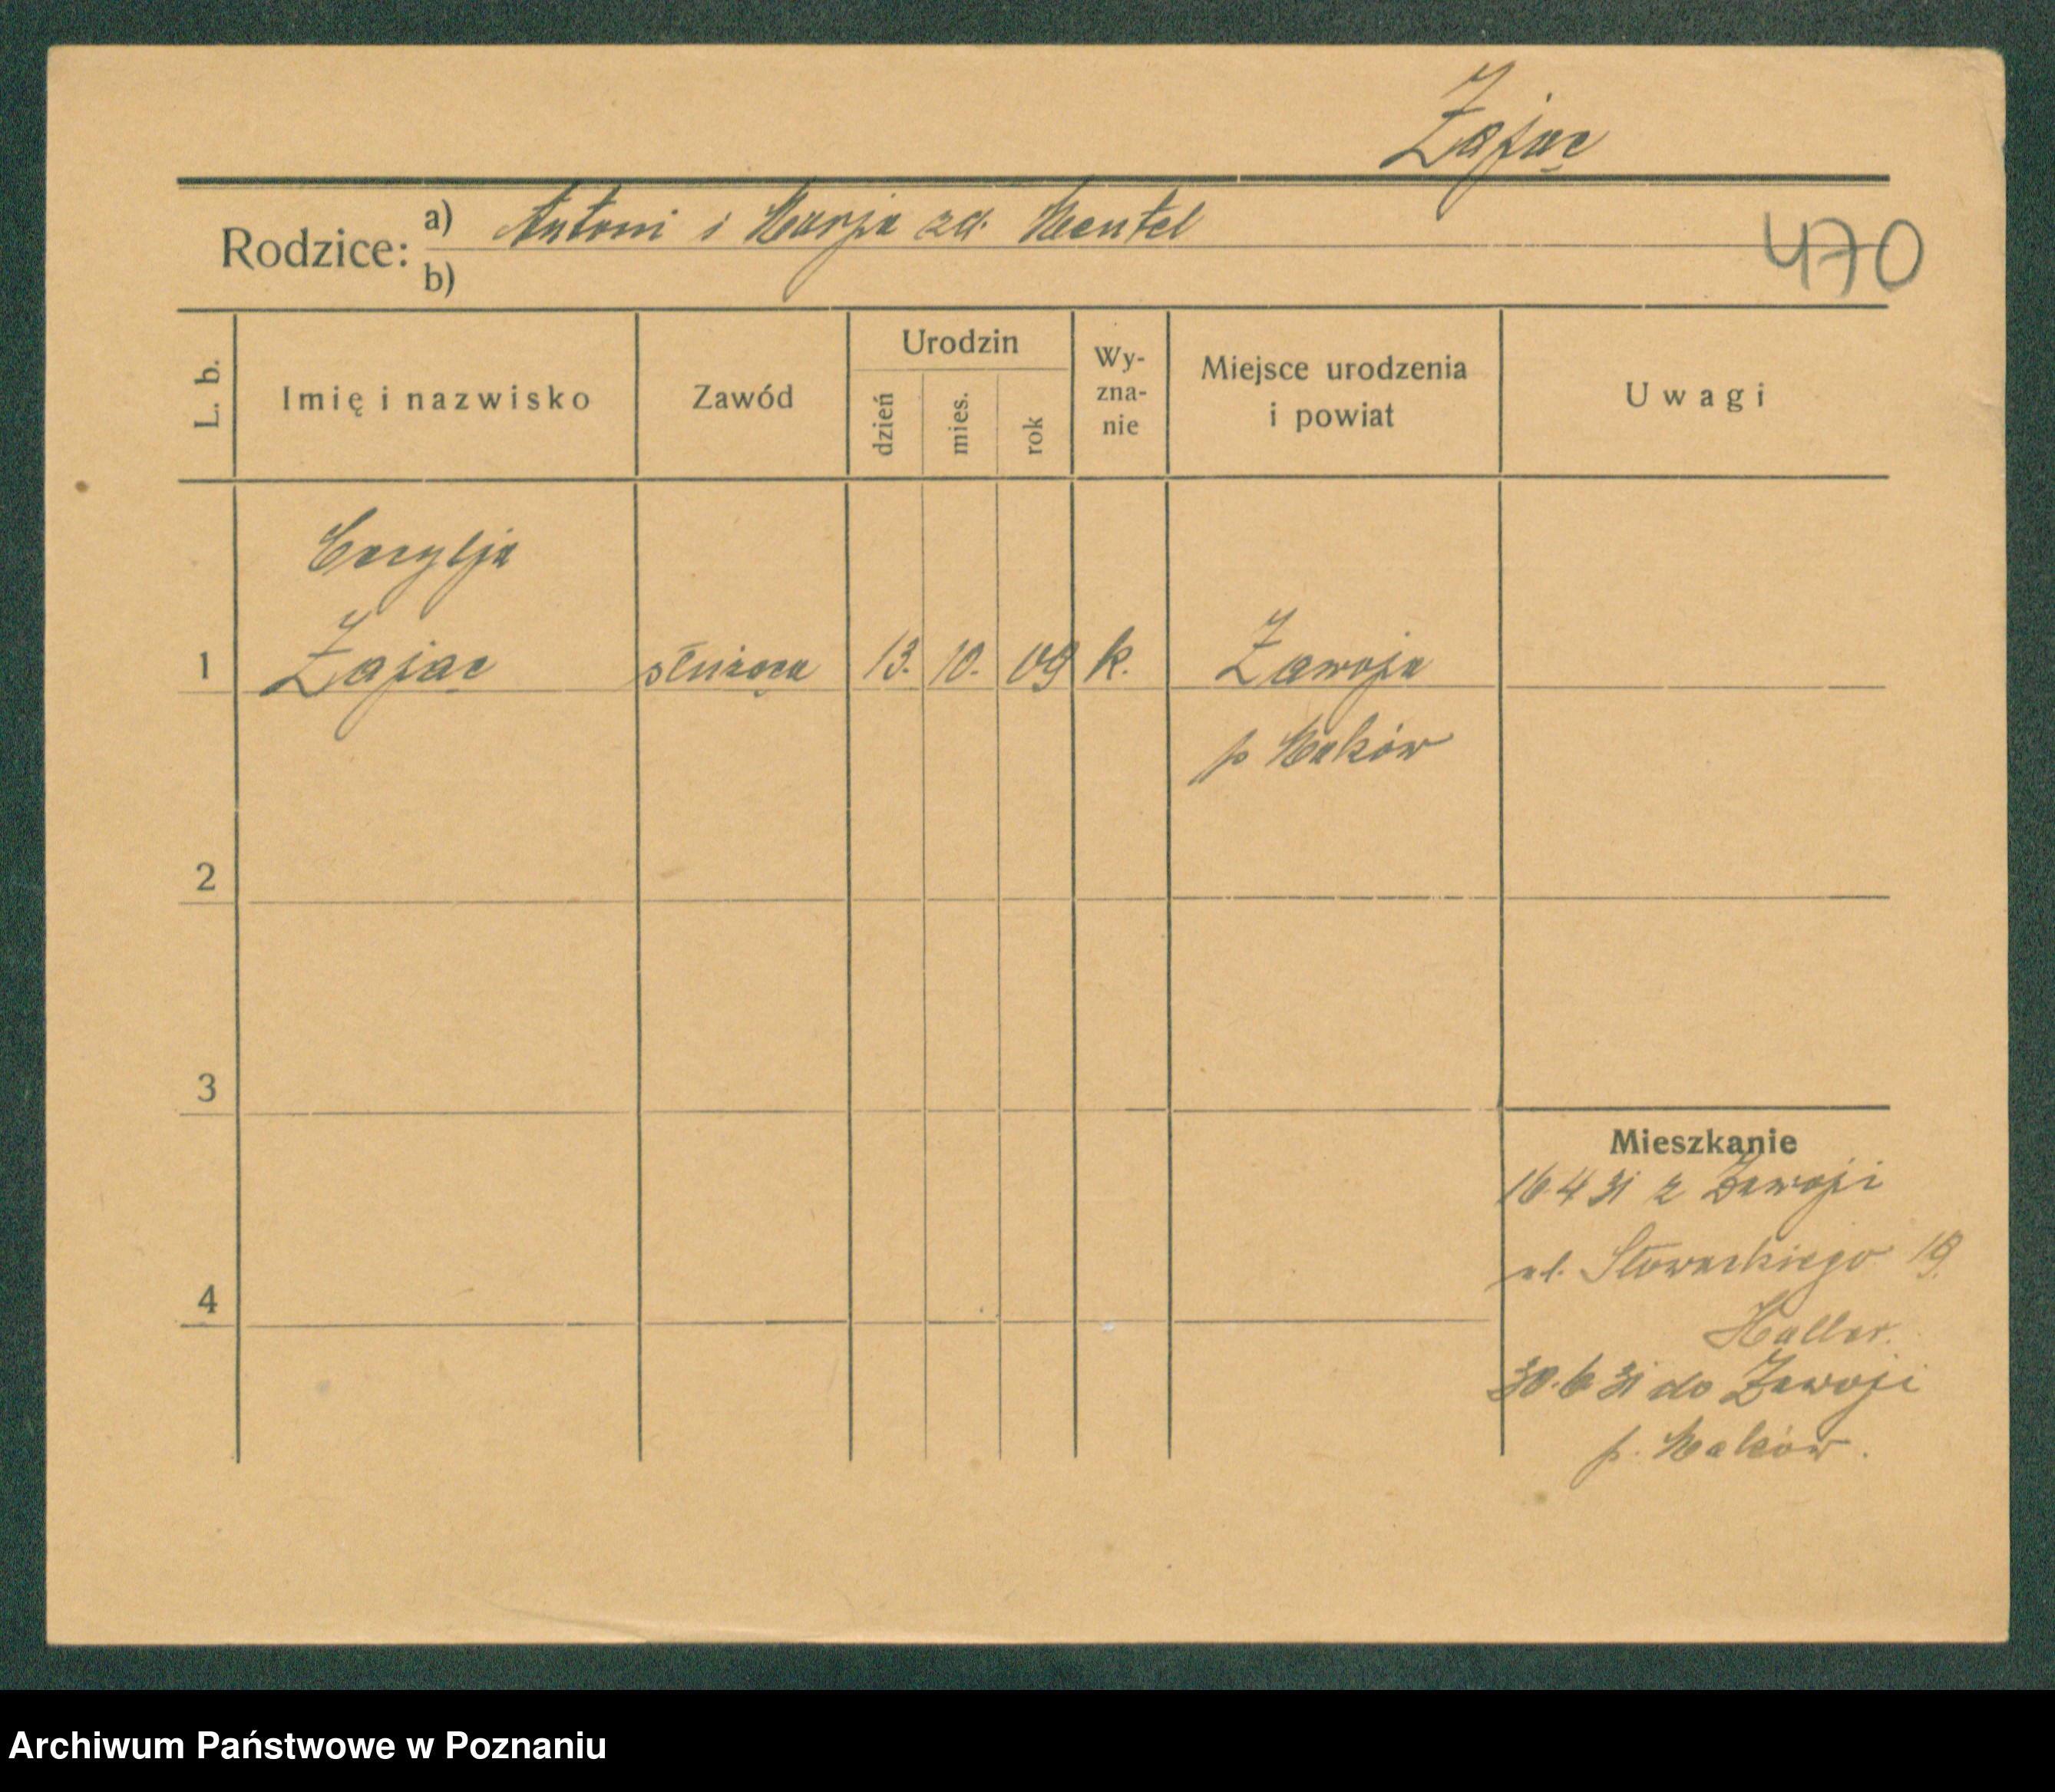 Zając
Rodzice: a) Antoni i Marja zd. Mentel
b)
470
L. b.
Imię i nazwisko
Zawód
Urodzin
dzień
mies.
rok
Wy-
zna-
nie
Miejsce urodzenia
i powiat
Uwagi
Cecylja
1 Zając służąca 13. 10. 09 k. Zawoja
p Maków
2
3
Mieszkanie
16 4 31 z Zawoji
ul. Słowackiego 19.
4
Haller.
30. 6 31 do Zawoji
p. Maków.
Archiwum Państwowe w Poznaniu